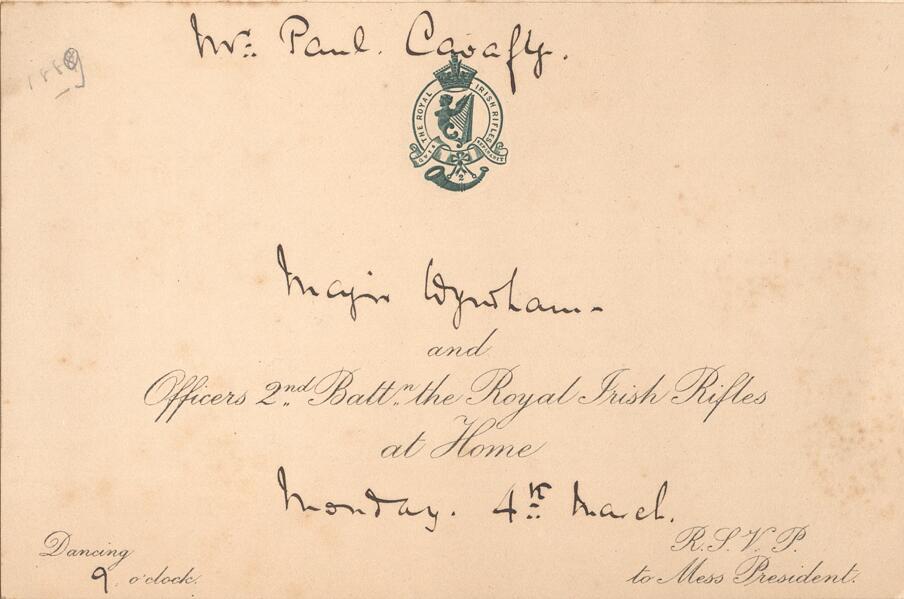 Mr. Paul. Cavafy.
1889
THE ROYAL IRISH RIFLES
2
Major Wyndham
and
Officers 2nd Battn. the Royal Irish Rifles
at Home
Monday. 4th March.
Dancing
9 o'clock.
R.S.V.P.
to Mess President.